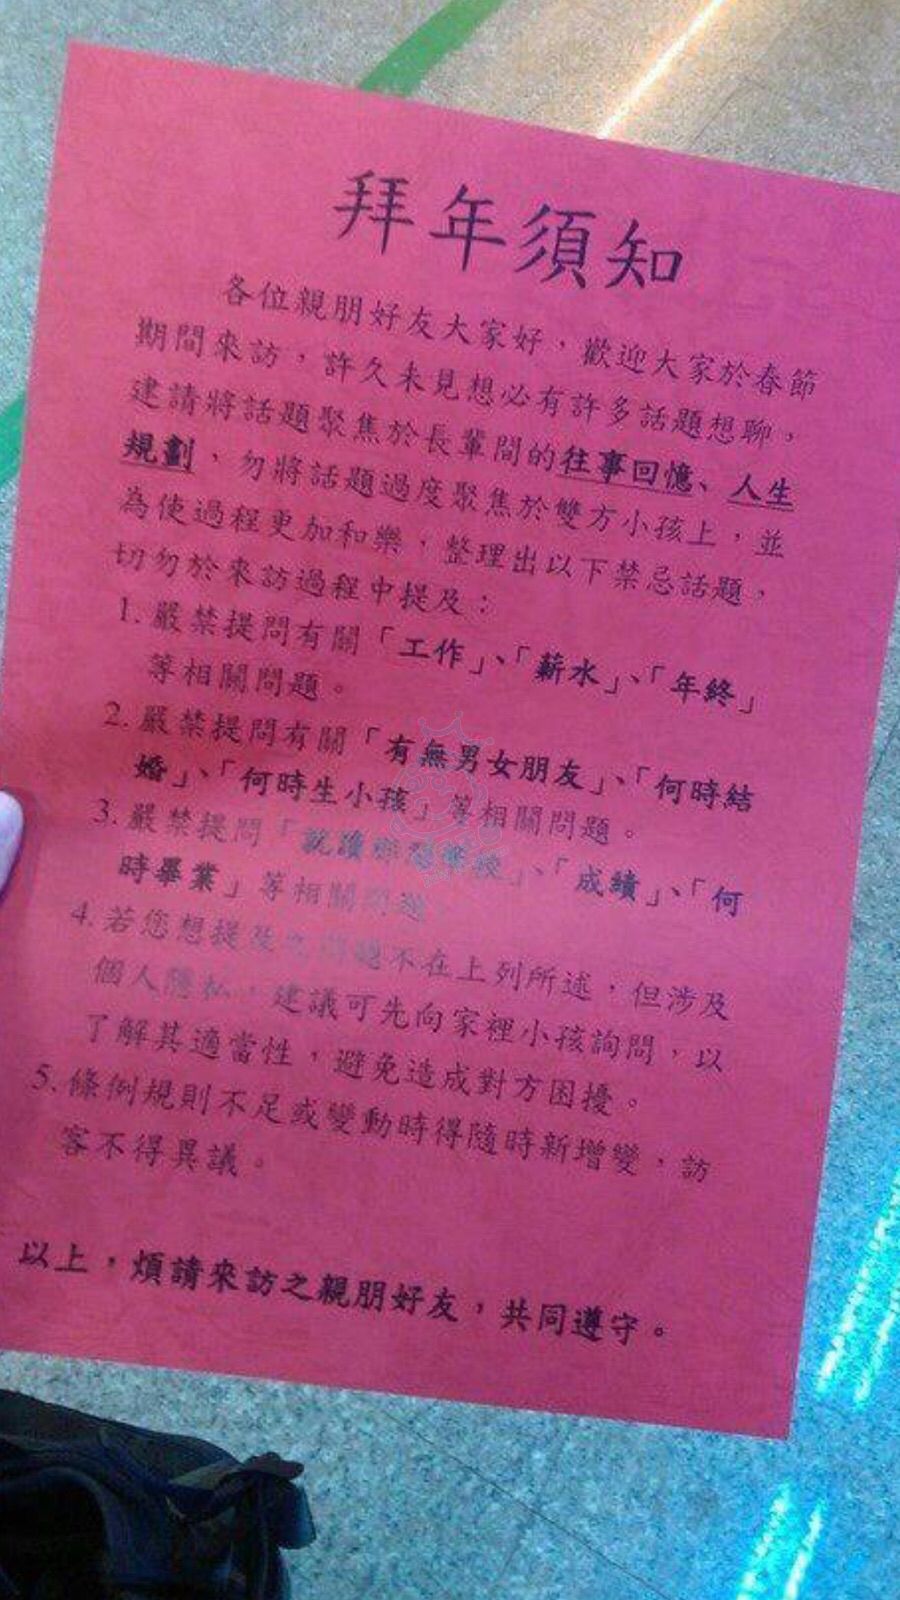 拜年須知
各位親朋好友大家好，歡迎大家於春節
期間來訪，許久未見想必有許多話題想聊，
建請將話題聚焦於長輩間的往事回憶、人生
規劃，勿將話題過度聚焦於雙方小孩上，並
為使過程更加和樂，整理出以下禁忌話題，
切勿於來訪過程中提及：
1. 嚴禁提問有關「工作」、「薪水」、「年終」
等相關問題。
2. 嚴禁提問有關「有無男女朋友」、「何時結
婚」、「何時生小孩」等相關問題。
3. 嚴禁提問「就讀哪間學校」、「成績」、「何
時畢業」等相關問題。
4. 若您想提及之問題不在上列所述，但涉及
個人隱私，建議可先向家裡小孩詢問，以
了解其適當性，避免造成對方困擾。
5. 條例規則不足或變動時得隨時新增變，訪
客不得異議。
以上，煩請來訪之親朋好友，共同遵守。